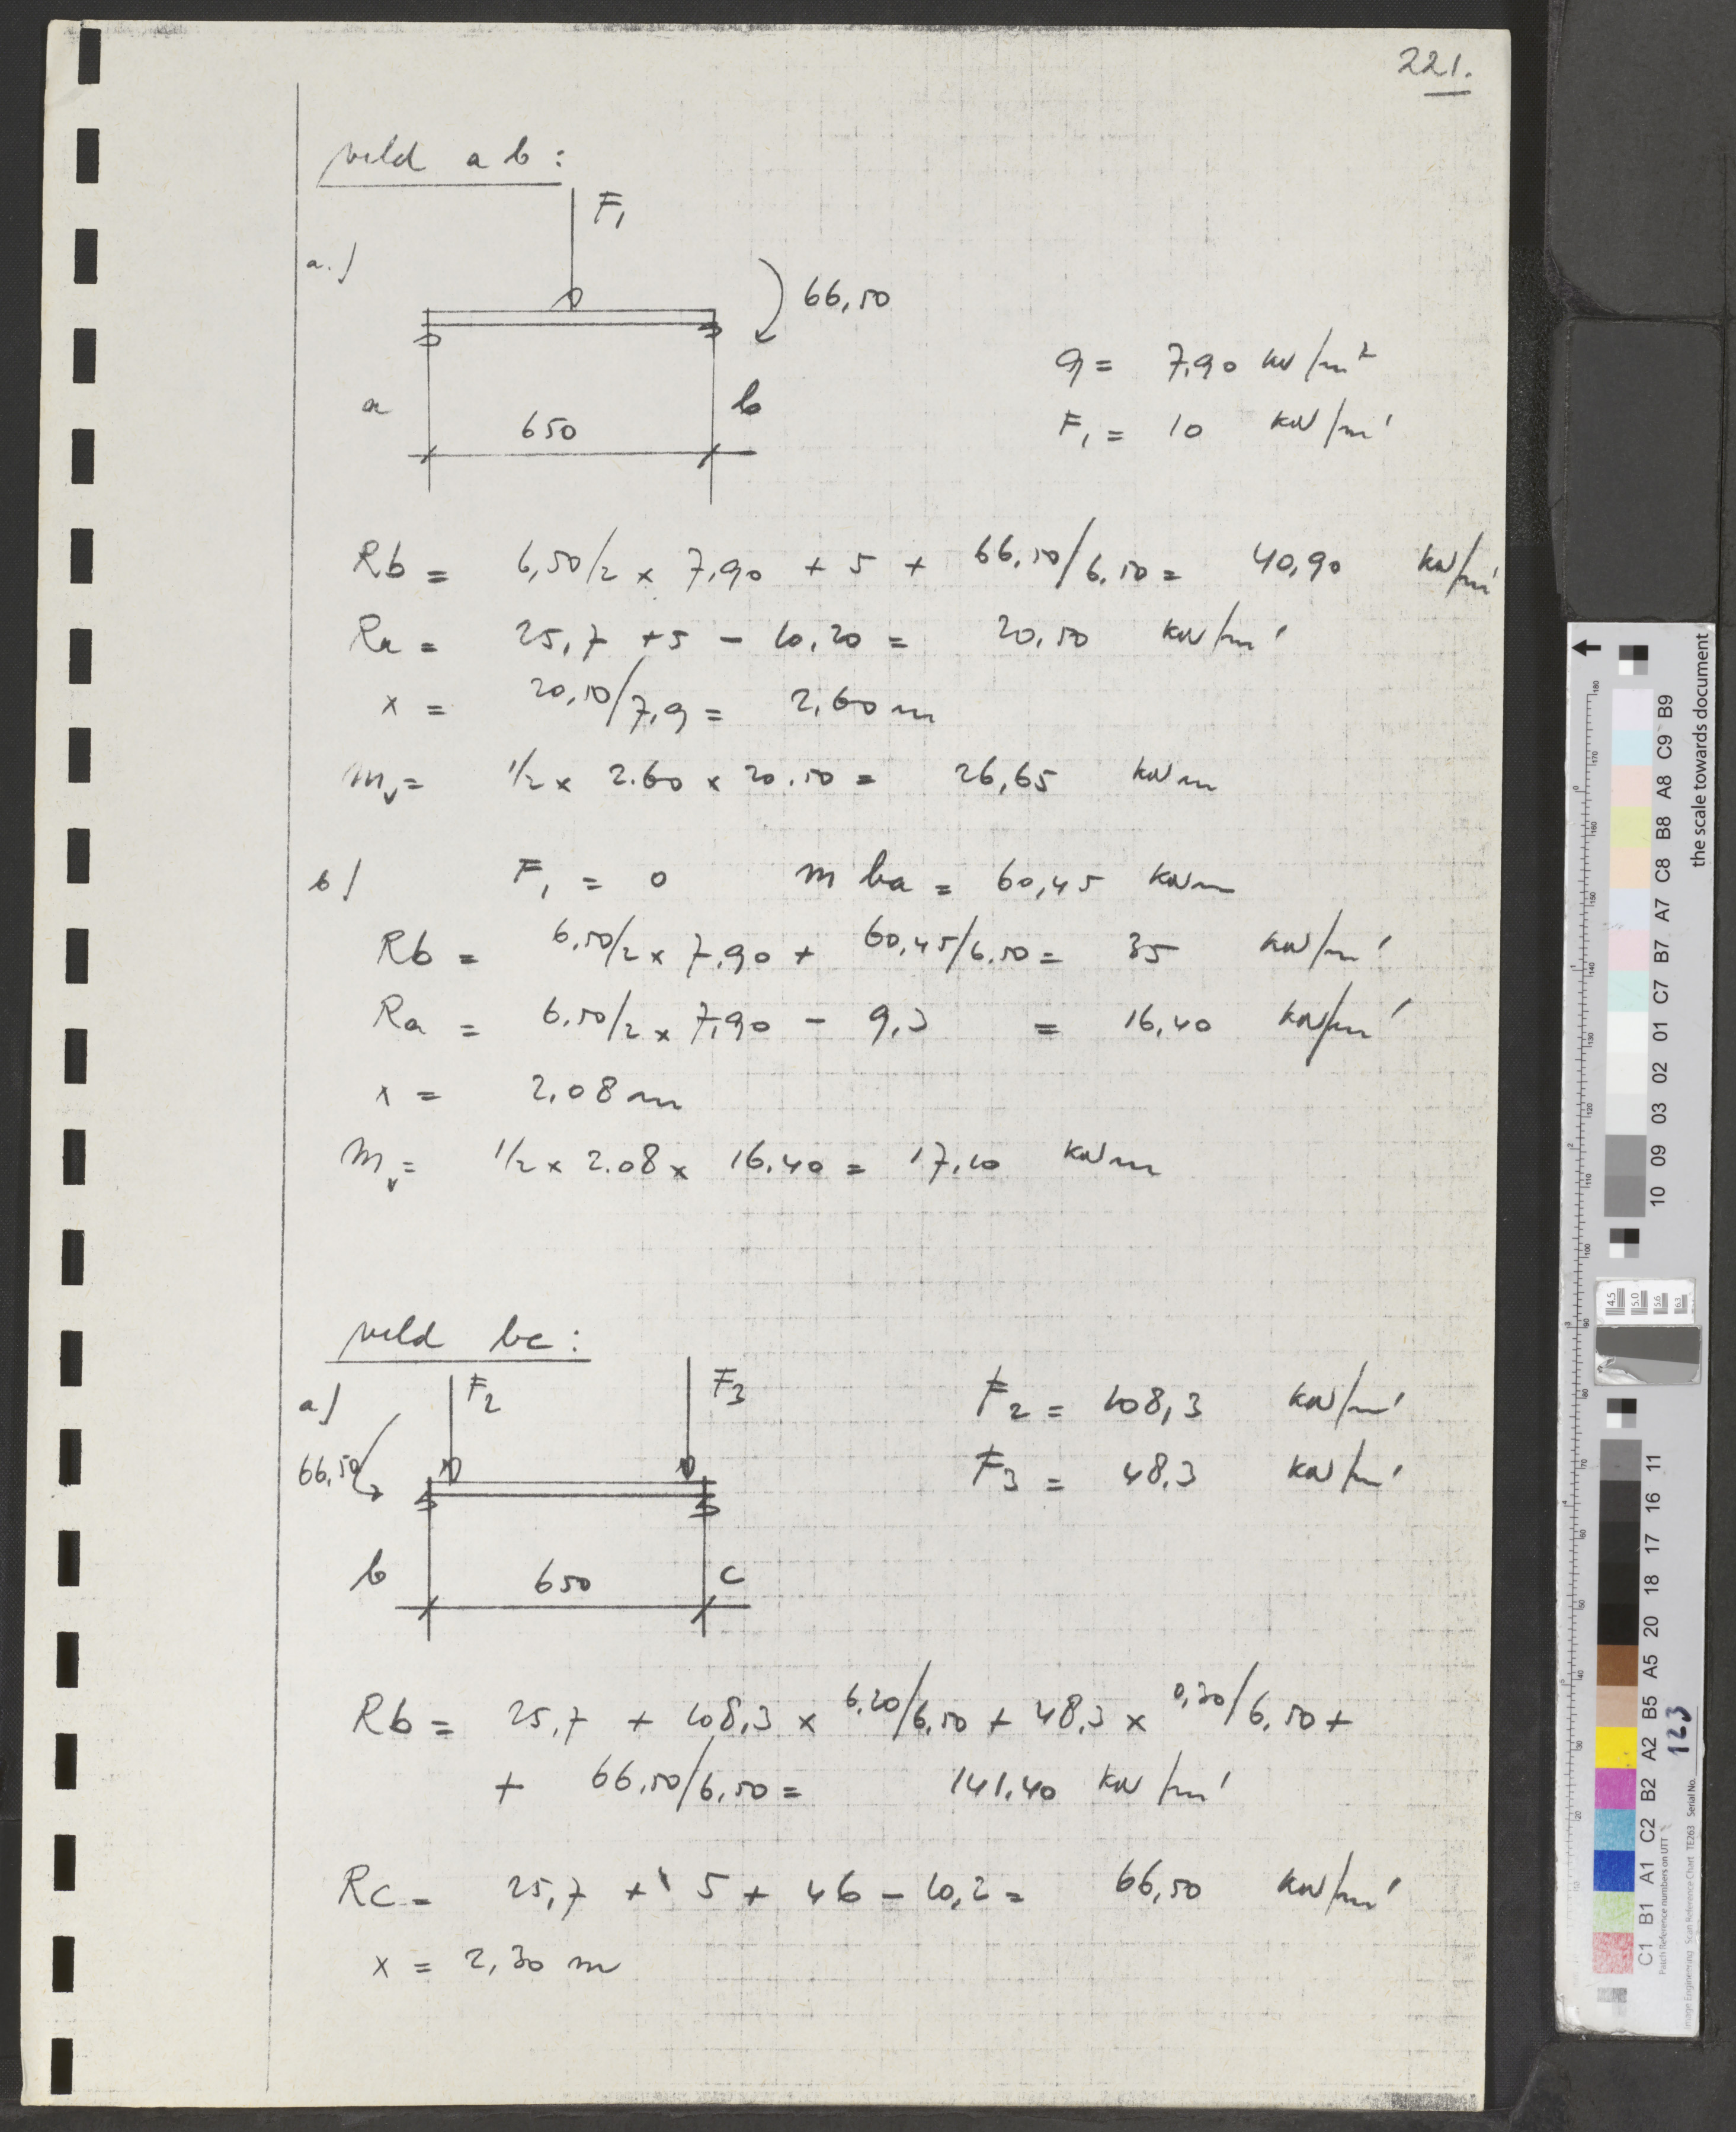 221.
veld ab:
F1
a.)
66,50
q = 7,90 kN/m²
a
b
F1 = 10 kN/m'
650
Rb = 6,50/2 x 7,90 + 5 + 66,50/6,50 = 40,90 kN/m'
Ra = 25,7 + 5 - 10,20 = 20,50 kN/m'
x = 20,50/7,9 = 2,60 m
mv = 1/2 x 2.60 x 20.50 = 26,65 kNm
b) F1 = 0 m ba = 60,45 kNm
Rb = 6,50/2 x 7,90 + 60,45/6,50 = 35 kN/m'
Ra = 6,50/2 x 7,90 - 9,3 = 16,40 kN/m'
x = 2,08 m
mv = 1/2 x 2.08 x 16.40 = 17,10 kNm
veld bc:
a)
F2
F3
F2 = 108,3 kN/m'
66,50
F3 = 48,3 kN/m'
b
650
c
Rb = 25,7 + 108,3 x 6,20/6,50 + 48,3 x 0,30/6,50 +
+ 66,50/6,50 = 141,40 kN/m'
Rc = 25,7 + 5 + 46 - 10,2 = 66,50 kN/m'
x = 2,30 m
the scale towards document
C1 B1 A1 C2 B2 A2 B5 A5 20 18 17 16 11
10 09 03 02 01 C7 B7 A7 C8 B8 A8 C9 B9
4.5
5.0
5.6
6.3
Patch Reference numbers on UTT
Image Engineering Scan Reference Chart TE263 Serial No. 123